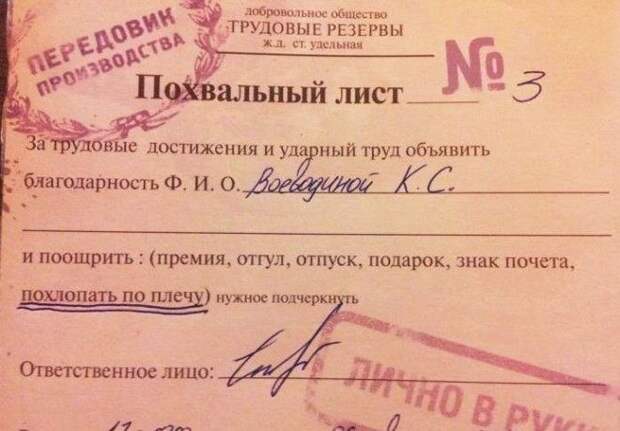 ПЕРЕДОВИК
ПРОИЗВОДСТВА
добровольное общество
ТРУДОВЫЕ РЕЗЕРВЫ
ж.д. ст. удельная
Похвальный лист № 3
За трудовые достижения и ударный труд объявить
благодарность Ф. И. О. Воеводиной К. С.
и поощрить : (премия, отгул, отпуск, подарок, знак почета,
похлопать по плечу) нужное подчеркнуть
Ответственное лицо:
ЛИЧНО В РУКИ